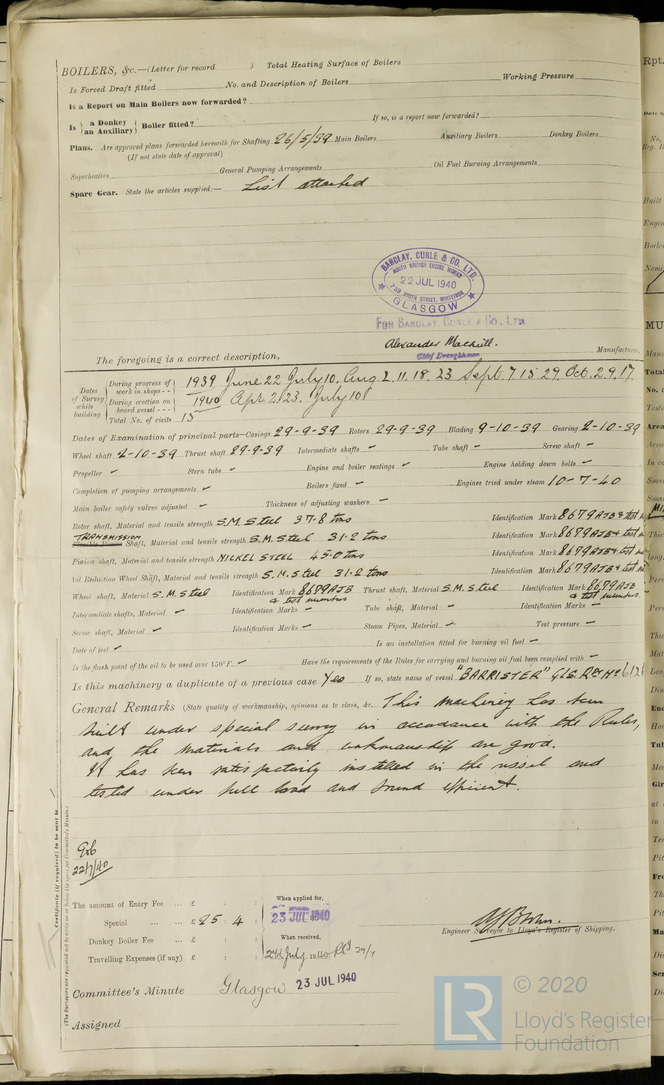 BOILERS, &c.—(Letter for record ) Total Heating Surface of Boilers
Is Forced Draft fitted No. and Description of Boilers Working Pressure
Is a Report on Main Boilers now forwarded?
Is { a Donkey / an Auxiliary } Boiler fitted? If so, is a report now forwarded?
Plans. Are approved plans forwarded herewith for Shafting 26/5/39 Main Boilers Auxiliary Boilers Donkey Boilers
(If not state date of approval)
Superheaters General Pumping Arrangements Oil Fuel Burning Arrangements
Spare Gear. State the articles supplied:— List attached
BARCLAY, CURLE & CO. LTD.
NORTH BRITISH ENGINE WORKS
22 JUL 1940
739 SOUTH STREET, WHITEINCH
GLASGOW
FOR BARCLAY, CURLE & CO., LTD.
Chief Draughtsman
The foregoing is a correct description, Manufacturer.
Dates of Survey while building
During progress of work in shops - - 1939 June 22 July 10. Aug 2. 11. 18. 23 Sept. 7 15 29. Oct. 2. 9. 17.
During erection on board vessel - - - 1940 Apr. 2. 23. July 10
Total No. of visits 15
Dates of Examination of principal parts—Casings 29-9-39 Rotors 29-9-39 Blading 9-10-39 Gearing 2-10-39
Wheel shaft 2-10-39 Thrust shaft 29-9-39 Intermediate shafts ✓ Tube shaft ✓ Screw shaft ✓
Propeller ✓ Stern tube ✓ Engine and boiler seatings ✓ Engine holding down bolts ✓
Completion of pumping arrangements ✓ Boilers fixed ✓ Engines tried under steam 10-7-40
Main boiler safety valves adjusted ✓ Thickness of adjusting washers ✓
Rotor shaft, Material and tensile strength S.M. Steel 37.8 tons Identification Mark 8679 AJB & test
TRANSMISSION Shaft, Material and tensile strength S.M. Steel 31.2 tons Identification Mark 8679 AJB & test
Pinion shaft, Material and tensile strength NICKEL STEEL 45.0 tons Identification Mark 8679 AJB & test
1st Reduction Wheel Shaft, Material and tensile strength S.M. Steel 31.2 tons Identification Mark 8679 AJB & test
Wheel shaft, Material S.M. Steel Identification Mark 8679 AJB & test numbers Thrust shaft, Material S.M. Steel Identification Mark 8679 AJB & test numbers.
Intermediate shafts, Material ✓ Identification Marks ✓ Tube shaft, Material ✓ Identification Marks ✓
Screw shaft, Material ✓ Identification Marks ✓ Steam Pipes, Material ✓ Test pressure ✓
Date of test ✓ Is an installation fitted for burning oil fuel ✓
Is the flash point of the oil to be used over 150°F. ✓ Have the requirements of the Rules for carrying and burning oil fuel been complied with ✓
Is this machinery a duplicate of a previous case Yes If so, state name of vessel "BARRISTER" GLS. Rpt No
General Remarks (State quality of workmanship, opinions as to class, &c. This machinery has been
built under special survey in accordance with the Rules,
and the materials and workmanship are good.
It has been satisfactorily installed in the vessel and
tested under full load and found efficient.
22/7/40
The amount of Entry Fee ... £ : :
Special ... ... £ 25 : 4 :
Donkey Boiler Fee ... £ : :
Travelling Expenses (if any) £ : :
When applied for,
23 JUL 1940
When received,
Engineer Surveyor to Lloyd's Register of Shipping.
Committee's Minute Glasgow 23 JUL 1940
Assigned
LR
© 2020
Lloyd's Register
Foundation